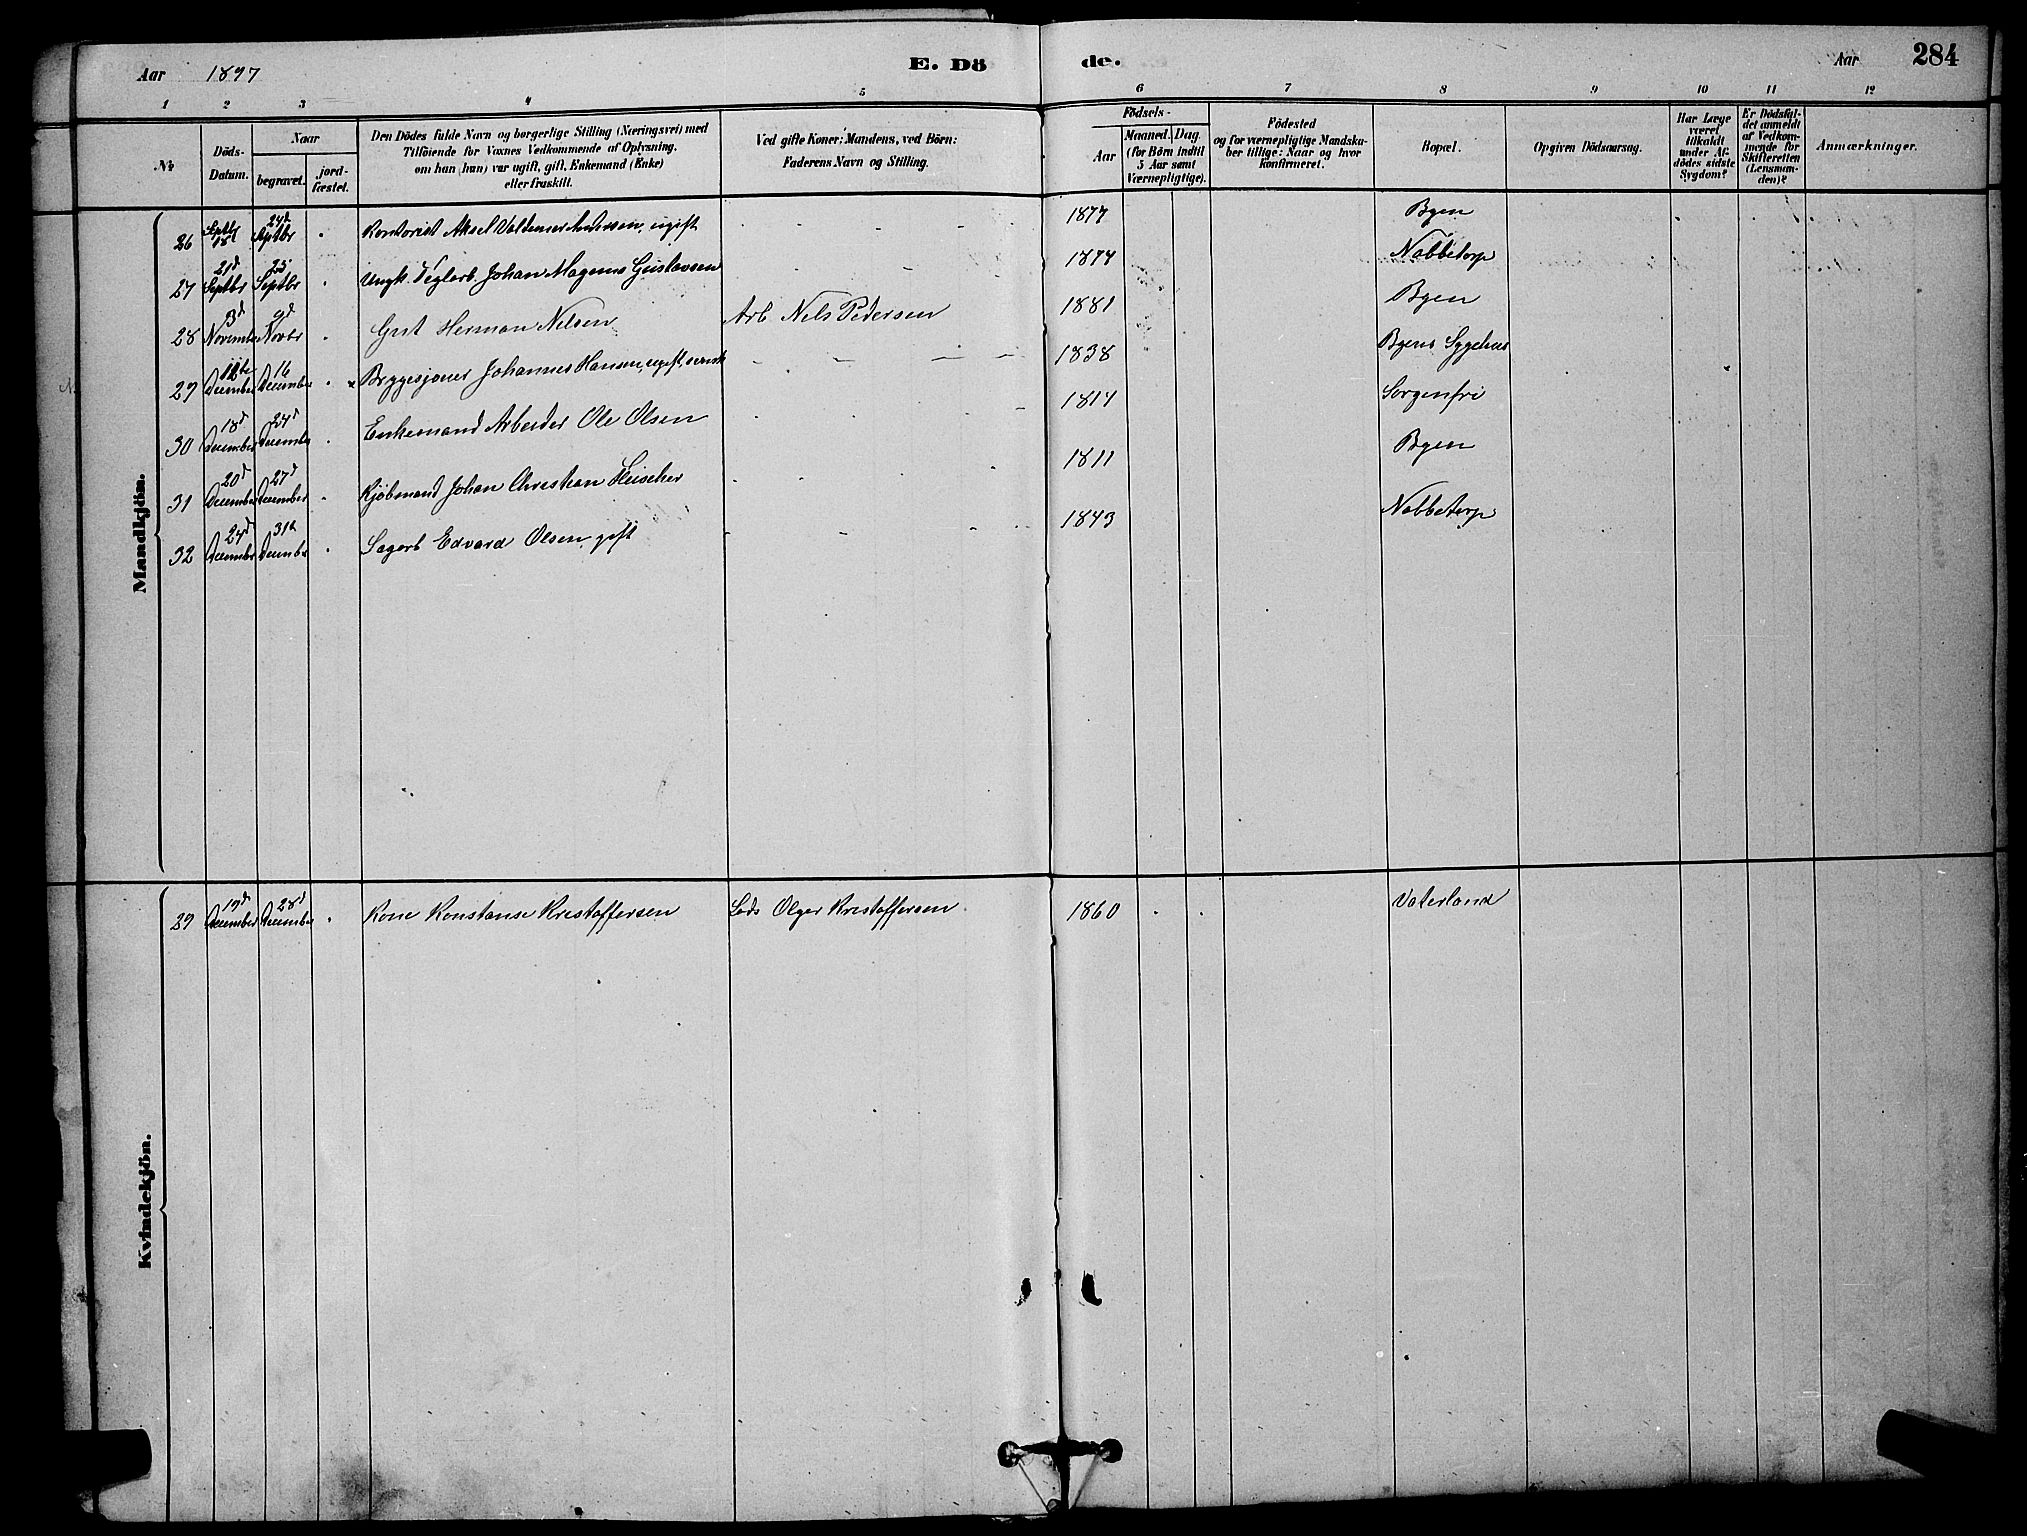 Aar 1897 E. Dö de. Aar 284
1 2 3 4 5 6 7 8 9 10 11 12
No
Döds-
Datum.
Naar
begravet.
jord-
fæstet.
Den Dödes fulde Navn og borgerlige Stilling (Næringsvei) med
Tilföiende for Voxnes Vedkommende af Oplysning,
om han (hun) var ugift, gift, Enkemand (Enke)
eller fraskilt.
Ved gifte Koner: Mandens, ved Börn:
Faderens Navn og Stilling.
Födsels-
Aar
Maaned. Dag.
(for Börn indtil
5 Aar samt
Værnepligtige).
Födested
og for værnepligtige Mandska-
ber tillige: Naar og hvor
konfirmeret.
Bopæl.
Opgiven Dödsaarsag.
Har Læge
været
tilkaldt
under Af-
dödes sidste
Sygdom?
Er Dödsfal-
det anmeldt
af Vedkom-
mende for
Skifteretten
(Lensman-
den)?
Anmærkninger.
Mandkjön.
26 Septbr 18 24d Septbr Kontorist Aksel Valdemar Andersen, ugift 1877 Byen
27 21d Septbr 25 Septbr Ungk. Teglarb. Johan Magnus Gustavsen 1874 Nabbetorp
28 3d Novembr 9d Novbr Gut Herman Nilsen Arb Nils Pedersen 1881 Byen
29 12te December 16 December Bryggesjouer Johannes Hansen, ugift, svensk 1838 Byens Sygehus
30 18d December 24d December Enkemand Arbeider Ole Olsen 1814 Sorgenfri
31 20d December 27d December Kjöbmand Johan Christian 1811 Byen
32 24d Decembr 31te Decembr Sagarb Edvard Olsen gift 1843 Nabbetorp
Kvindekjön.
29 19d December 28d December Kone Konstanse Kristoffersen Lods Olger Kristoffersen 1860 Vaterland